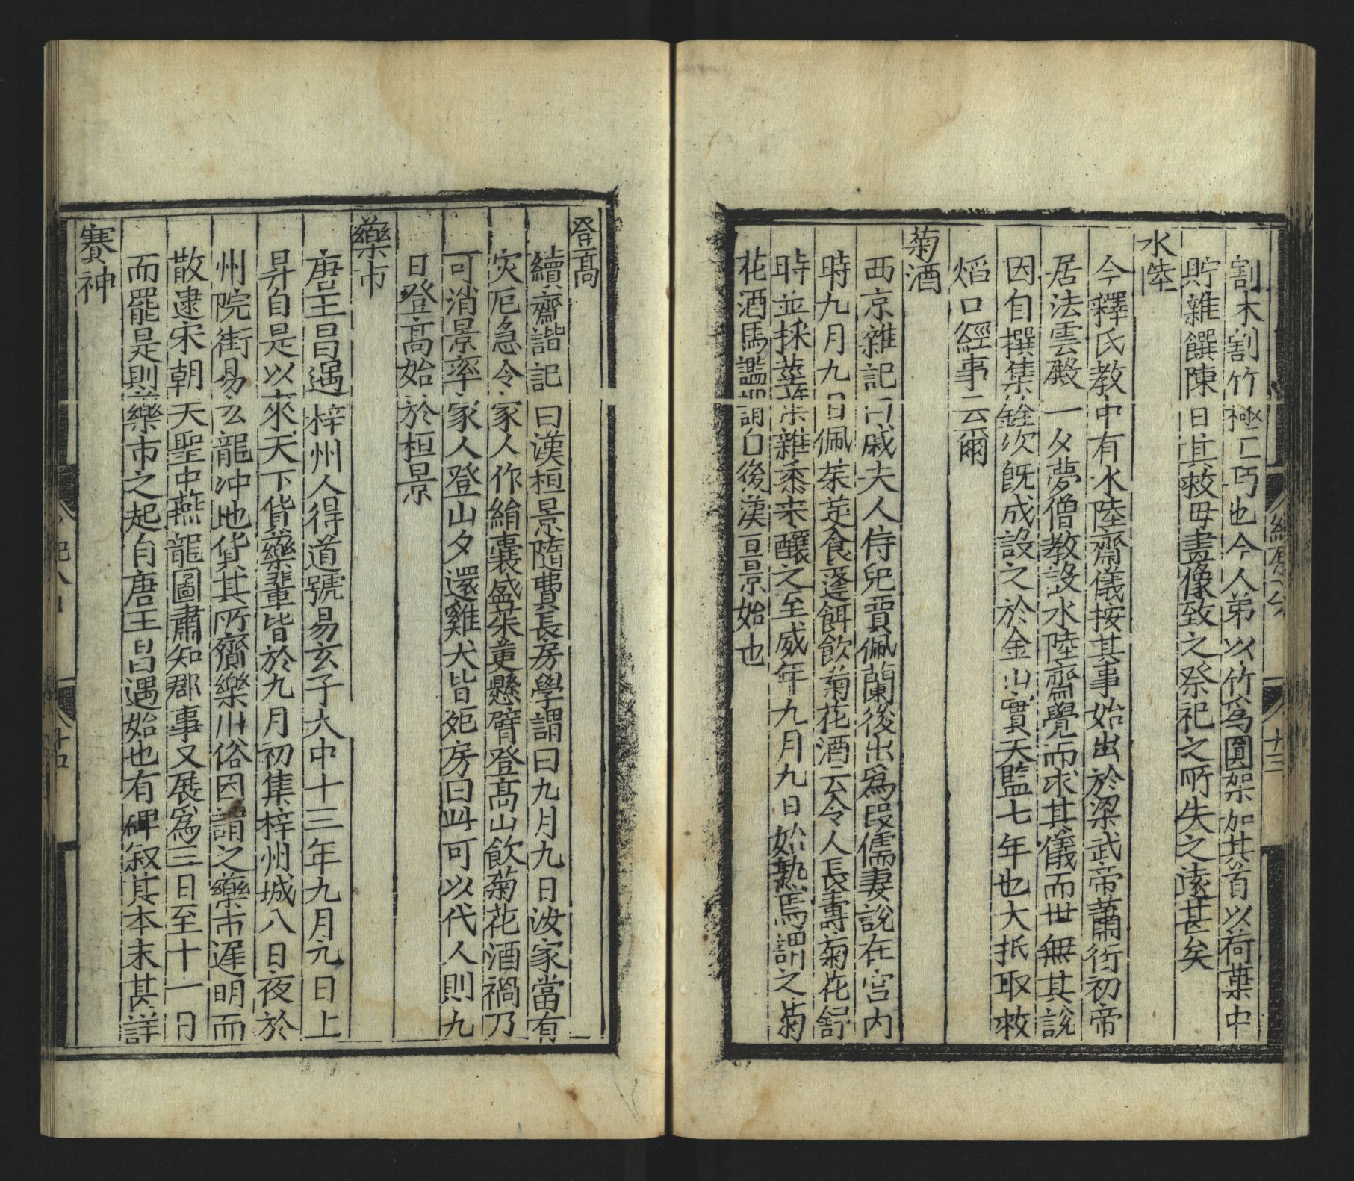 割木割竹極工巧也今人第以竹為圓架加其首以荷葉中
貯雜饌陳目連救母畫像致之祭祀之所失之遠甚矣
水陸
今釋氏教中有水陸齋儀按其事始出於梁武帝蕭衍初帝
居法雲殿一夕夢僧教設水陸齋覺而求其儀而世無其說
因自撰集銓次旣成設之於金山實天監七年也大抵取救
焰口經事云爾
菊酒
西京雜記曰戚夫人侍兒賈佩蘭後出爲段儒妻說在宮内
時九月九日佩茱萸食蓬餌飲菊花酒云令人長壽菊花舒
時並採莖葉雜黍米釀之至咸年九月九日始熟焉謂之菊
花酒馬謐謂自後漢亘景始也
登高
續齋諧記曰漢桓景隨費長房學謂曰九月九日汝家當有
灾厄急令家人作絹囊盛茱萸懸臂登高山飲菊花酒禍乃
可消景率家人登山夕還雞犬皆死房曰此可以代人則九
日登高始於桓景
藥市
唐王昌遇梓州人得道號易玄子大中十三年九月元日上
昇自是以來天下貨藥輩皆於九月初集梓州城八日夜於
州院街易玄龍冲地貨其所齎藥川俗因謂之藥市遲明而
散逮宋朝天聖中燕龍圖肅知郡事又展爲三日至十一日
而罷是則藥市之起自唐王昌遇始也有碑叙其本末甚詳
賽神